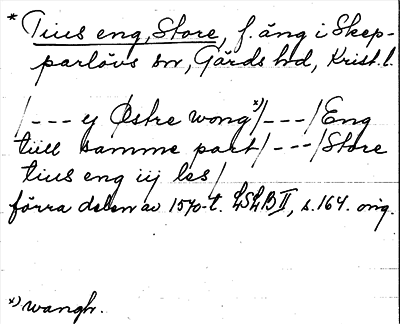 * Tius eng, Store, f. äng i Skep-
parlövs sn, Gärds hd, Krist. l.
/--- y Østre wong*)/---/Eng
tiill samme part/---/Store
tius eng iij les/
förra delen av 1570-t. LSLB II, s. 164. orig.
*) wangh.